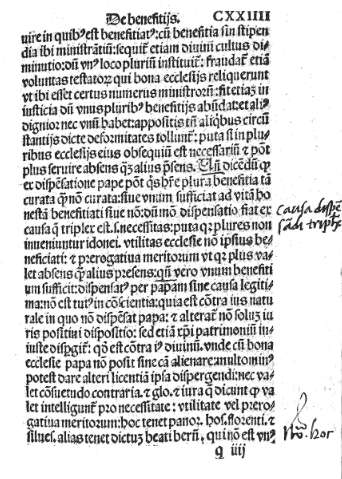 De beneficijs. CXXIIII
uire in quibꝰ est beneficiatꝰ: cũ beneficia sin stipen
dia ibi ministrãtiũ: sequit̃ etiam diuini cultus di-
minutio: dũ vnꝰ loco pluriũ instituit̃: fraudat̃ etiã
voluntas testatoꝝ qui bona ecclesijs reliquerunt
vt ibi esset certus numerus ministroꝝ: fit etiaȝ in
iusticia dũ vnus pluribꝰ beneficijs abũdat: et aliꝰ
dignior nec vnũ habet: appositis tñ aliqbus circũ
stantijs dicte deformitates tollunt̃: puta si in plu-
ribus ecclesijs eius obsequiũ est necessariũ & põt
plus seruire absens qȝ alius p̃sens. Uñ dicẽdũ ꝙ
ex dispẽsatione pape põt qs hr̃e plura beneficia tã
curata q̃ nõ curata: siue vnum sufficiat ad vitã ho
nestã beneficiati siue nõ: dũmõ dispensatio fiat ex
causa q̃ triplex est. s. necessitas: puta qꝛ plures non
inueniuntur idonei. vtilitas ecclesie nõ ipsius be-
neficiati: & p̃rogatiua meritorum vt qꝛ plus va-
let absens q̃ alius presens: qñ vero vnum benefici
um sufficit: dispensatꝰ per papam sine causa legiti-
ma: nõ est tutꝰ in cõscientia: quia est cõtra ius natu
rale in quo nõ dispẽsat papa: & alterat̃ nõ soluȝ iu
ris positiui dispositio: sed etiã xp̃i patrimoniũ in-
iuste disp̃git̃: qõ est cõtra iꝰ diuinũ. vnde cũ bona
ecclesie papa nõ possit sine cã alienare: multominꝰ
potest dare alteri licentiã ipsa dispergendi: nec va-
let cõsuetudo contraria. & glo. & iura q̃ dicunt ꝙ va
let intelligunt̃ pro necessitate: vtilitate vel prero-
gatiua meritorum: hoc tenet panor. hos. florenti. &
silues. alias tenet dictuȝ beati berñ. qui nõ est vnꝰ
q iiij
causa dispẽ
triplex